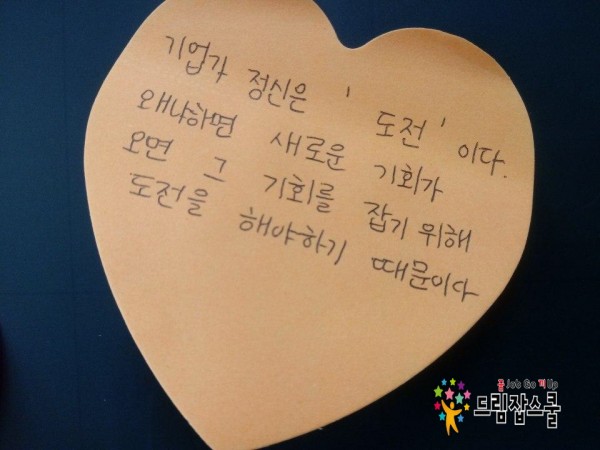 기업가 정신은 '도전'이다.
왜냐하면 새로운 기회가
오면 그 기회를 잡기 위해
도전을 해야하기 때문이다
꿈 Job Go 끼 Up
드림잡스쿨